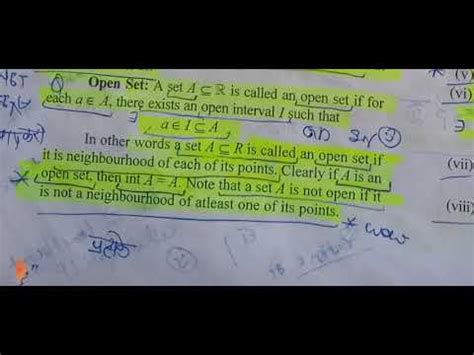 Open Set: A set A ⊆ ℝ is called an open set if for
each a ∈ A, there exists an open interval I such that
a ∈ I ⊆ A
In other words a set A ⊆ R is called an open set if
it is neighbourhood of each of its points. Clearly if A is an
open set, then int A = A. Note that a set A is not open if it
is not a neighbourhood of atleast one of its points.
wow
(v)
(vi)
(vii)
(viii)